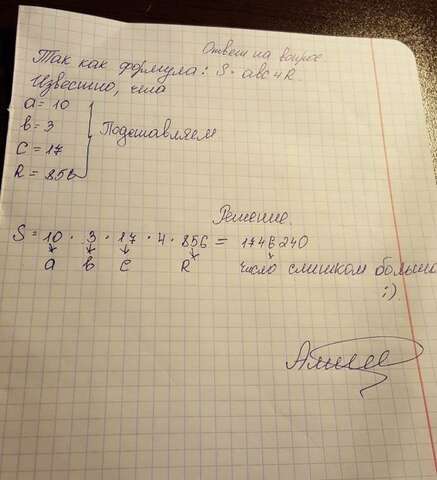 Ответ на вопрос
Так как формула: S = abc4R.
Известно, что
a = 10
b = 3
c = 17
R = 856
Подставляем
Решение.
S = 10 · 3 · 17 · 4 · 856 = 1746240
a b c R число слишком большо
:)